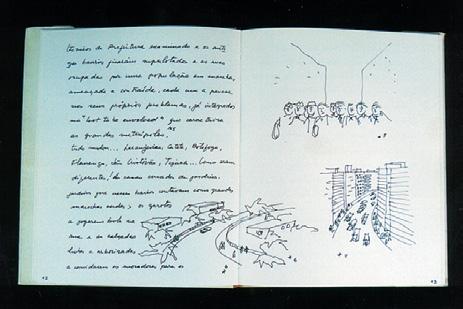 técnicos da Prefeitura examinado e os anti
gos bairros ficariam superlotados e as ruas
ocupadas por uma população em marcha,
ameaçada e contraída, cada um a pensar
nos seus próprios problemas, já integrados
as grandes metrópoles.
tudo mudou... Laranjeiras, Catete, Botafogo,
Flamengo, São Cristóvão, Tijuca... Como eram
diferentes, de casas cercadas de jardins.
jardins que nesses bairros
manchas verdes; os garotos
a jogarem bola na
rua e as calçadas
lisas e arborizadas
a convidarem os moradores para os
42
43